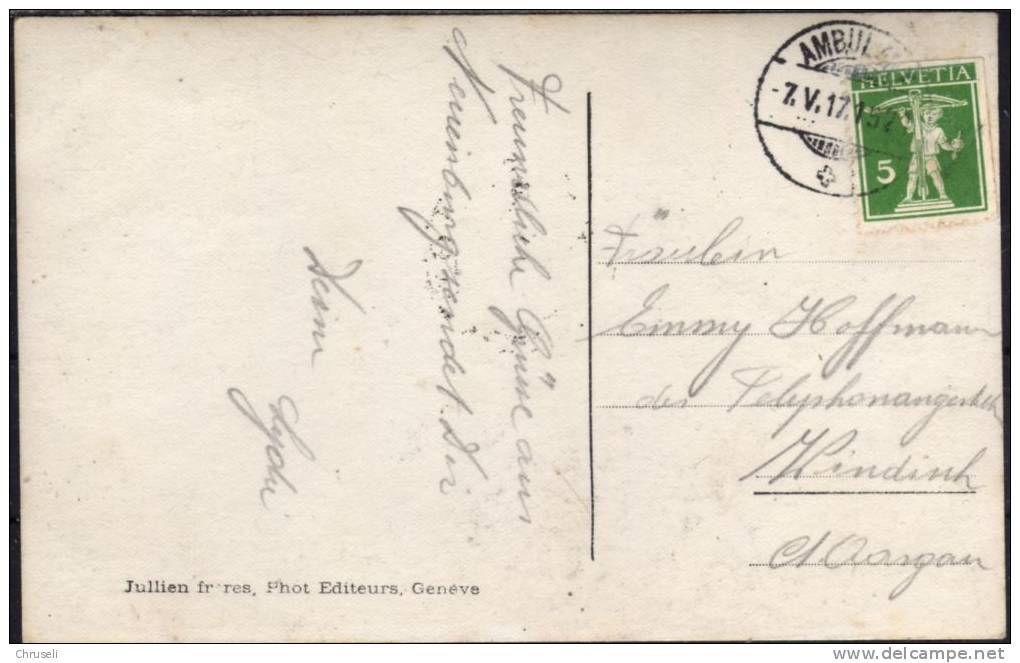 Freundliche Grüsse aus
Neuenburg sendet Dir
Deine
Lydia
Jullien frères, Phot Editeurs, Genève
AMBULANT
-7.V.17.
HELVETIA
5
Fräulein
Emmy Hoffmann
Telephonangestellte
Windisch
Ct. Aargau
Chruseli
www.delcampe.net